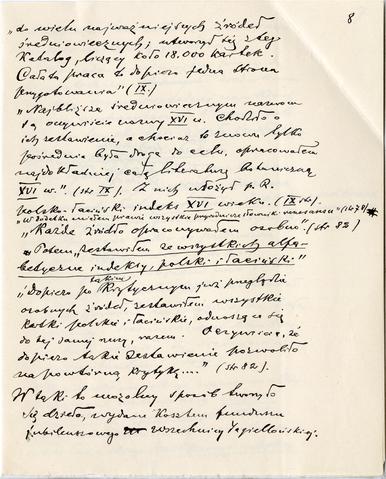 8
„do wielu najważniejszych źródeł
średniowiecznych; utworzył się z tego
Katalog, liczący koło 18.000 kartek.
Cała ta praca to dopiero jedna strona
przygotowania" (IX.)
„Najbliższe średniowiecznym nazwom
są oczywiście nazwy XVI w. Chodziło o
ich zestawienie, a chociaż to znowu tylko
pośrednia była droga do celu, opracowałem
najdokładniej całą literaturę botaniczną
XVI w.". (str IX). Z nich ułożył p. R.
polsko-łaciński indeks XVI wieku. (IX str.)
(1478)
„Każde źródło opracowywałem osobno". (str 82)
„Potem zestawiłem ze wszystkich alfa-
betyczne indeksy, polski i łaciński"
takim
„Dopiero po krytycznym już przeglądzie
osobnych źródeł, zestawiłem wszystkie
kartki polskie i łacińskie, odnoszące się
do tej samej nazwy, razem. Oczywiście, że
dopiero takie zestawienie pozwoliło
na powtórną krytykę...." (str 82).
W taki to mozolny sposób tworzyło
się dzieło, wydane kosztem funduszu
jubileuszowego Wszechnicy Jagiellońskiej.